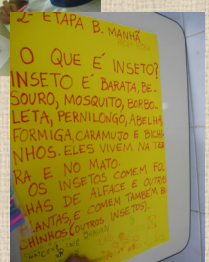 2ª ETAPA B. MANHÃ
O QUE É INSETO?
INSETO É BARATA, BE-
SOURO, MOSQUITO, BORBO-
LETA, PERNILONGO, ABELHA,
FORMIGA, CARAMUJO E BICHI-
NHOS. ELES VIVEM NA TER
RA E NO MATO.
OS INSETOS COMEM FO
LHAS DE ALFACE E OUTRAS
PLANTAS, E COMEM TAMBÉM BI
CHINHOS (OUTROS INSETOS).